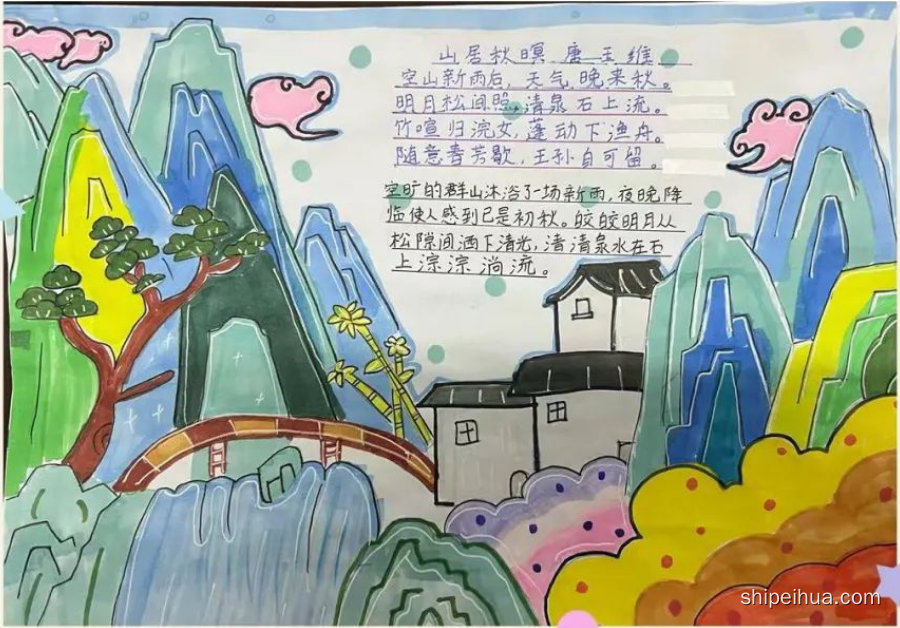 山居秋暝 唐 王维
空山新雨后，天气晚来秋。
明月松间照，清泉石上流。
竹喧归浣女，莲动下渔舟。
随意春芳歇，王孙自可留。
空旷的群山沐浴了一场新雨，夜晚降
临使人感到已是初秋。皎皎明月从
松隙间洒下清光，清清泉水在石
上淙淙淌流。
shipeihua.com